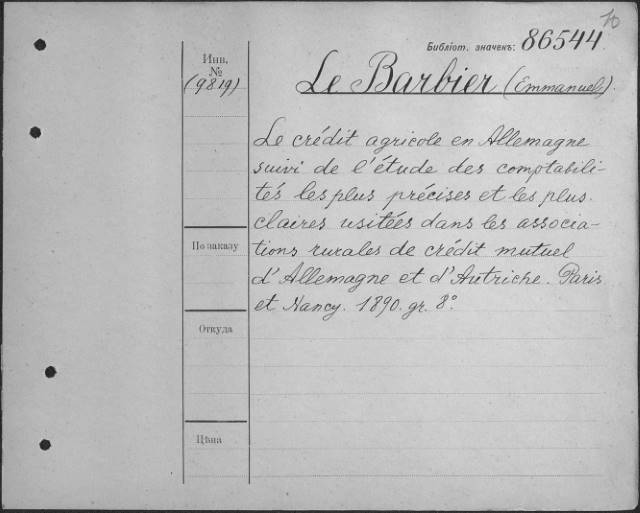 10
Библіот. значекъ: 86544
Инв.
№
(9819)
Le Barbier (Emmanuel).
Le crédit agricole en Allemagne
suivi de l'étude des comptabili-
tés les plus précises et les plus
claires usitées dans les associa-
tions rurales de crédit mutuel
d'Allemagne et d'Autriche. Paris
et Nancy. 1890. gr. 8°.
По заказу
Откуда
Цѣна